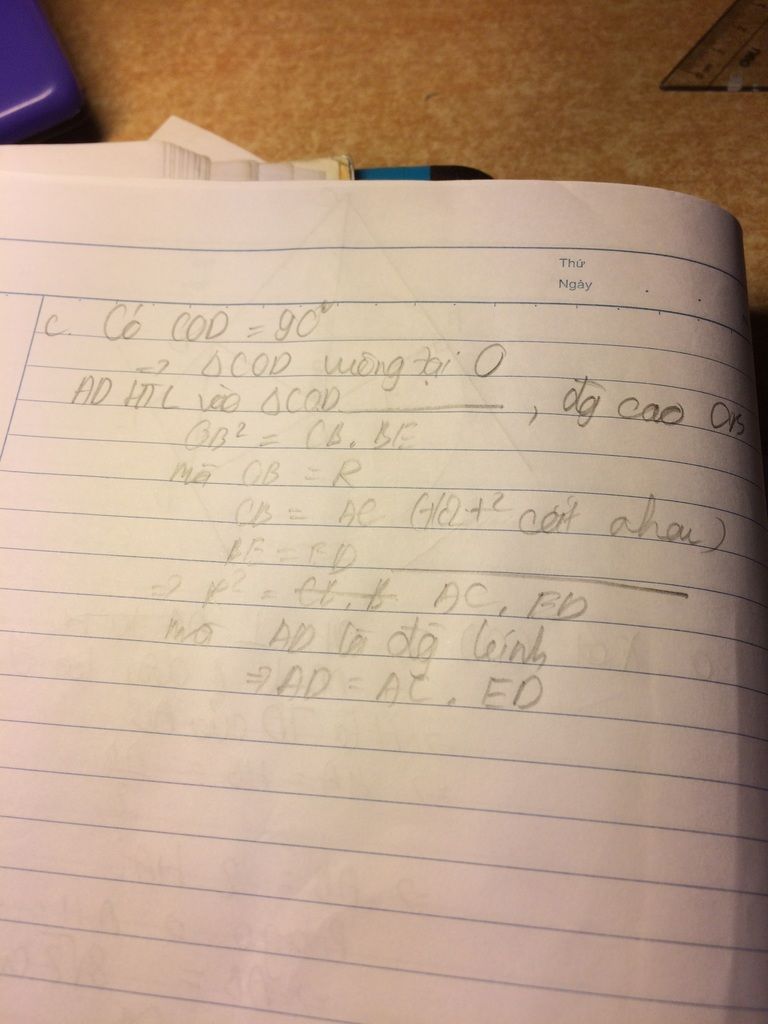 Thứ
Ngày
c. Có COD = 90°
⇒ ΔCOD vuông tại O
AD HTL vào ΔCOD ———, đg cao OB
OB² = CB. BE
mà OB = R
CB = AC (t/c 2 t² cắt nhau)
BE = ED ———
⇒ R² = ~~CB. B~~ AC. ED
mà AD là đg kính
⇒ AD = AC. ED